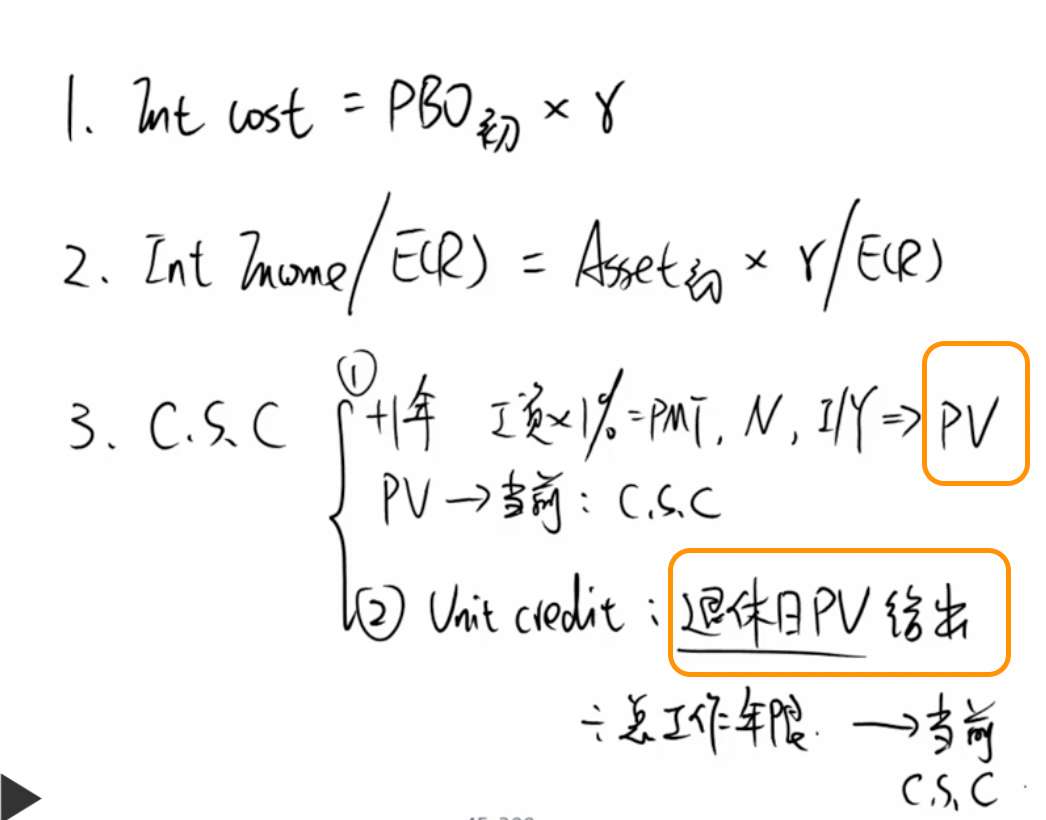 1. Int cost = PBO初 × r
2. Int Income/E(R) = Asset初 × r/E(R)
3. C.S.C { ① +1年 工资×1%=PMT, N, I/Y ⇒ PV
PV → 当前: C.S.C
② Unit credit: 退休日PV 给出
÷总工作年限. → 当前
C.S.C